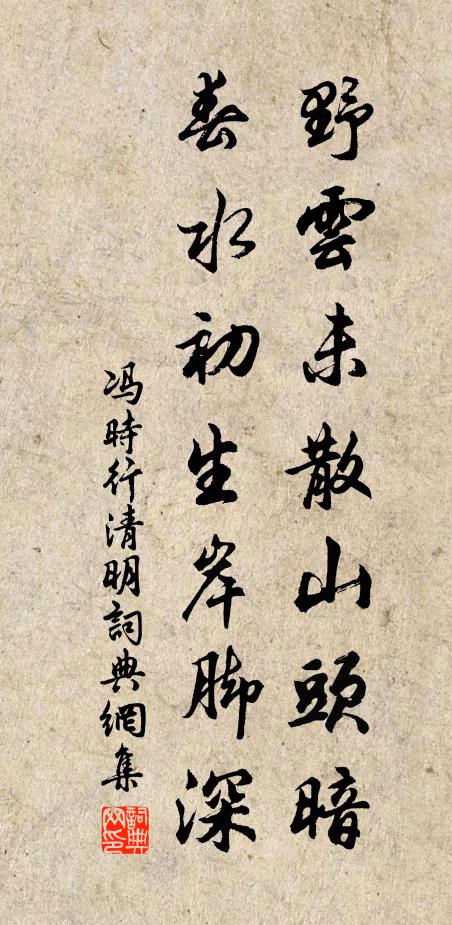 野雲未散山頭暗
春水初生岸脚深
冯時行清明詞典網集
詞典网印